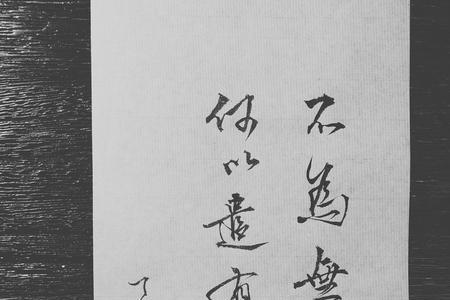 不為無
何以遣有